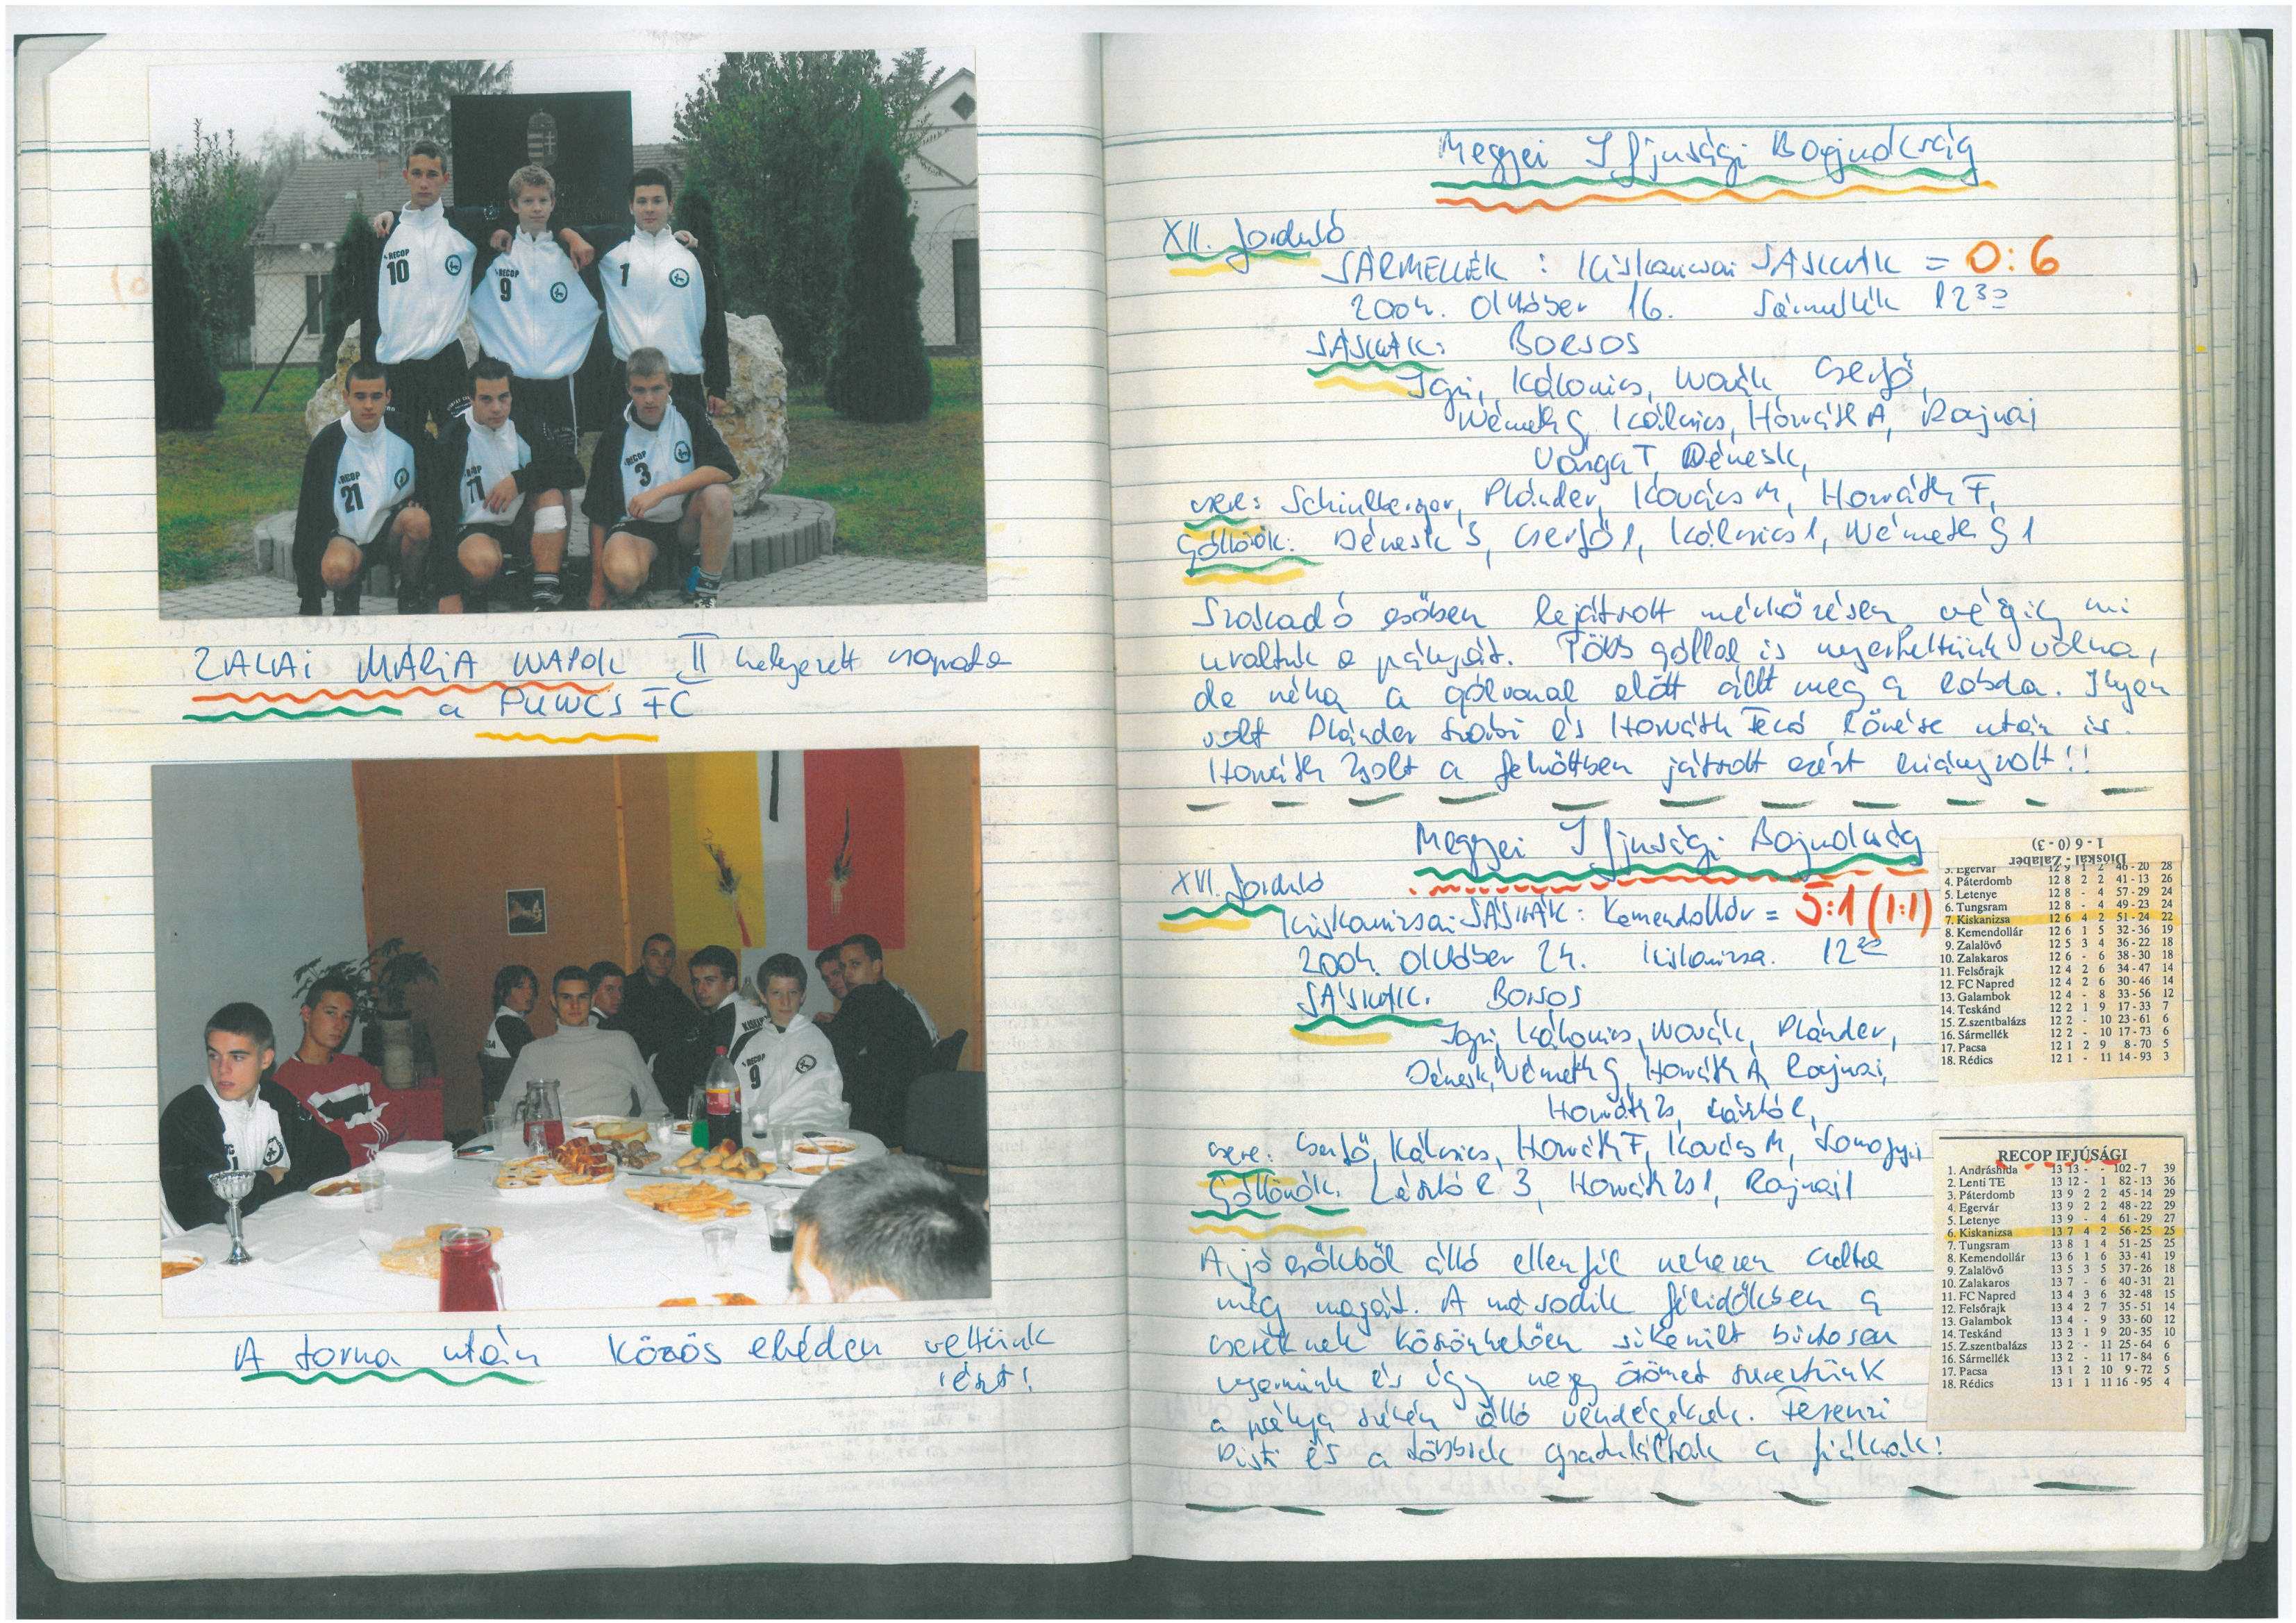 RECOP
10
RECOP
9
1
RECOP
21
RECOP
11
RECOP
3
ZALAI MÁRIA NAPOK II helyezett csapata
a PUNCS FC
RECOP
9
A torna után közös ebéden vettünk
részt!
Megyei Ifjusági Bajnokság
XII. forduló
SÁRMELLÉK : Kiskanizsai SÁSKÁK = 0:6
2004. Október 16. Sármellék 12 30
SÁSKÁK: BORSOS
Igri, Kálovics, Novák Cserfő,
Németh G, Kálnics, Horváth A, Rajnai
Varga T, Dénesk,
csere: Plánder, Kovács M, Horváth F,
Góllövők: Dénesk 3, Cserfő 1, Kálnics 1, Németh G 1
Szakadó esőben lejátszott mérkőzésen végig mi
uraltuk a pályát. Több góllal is nyerhettünk volna,
de néha a gólvonal előtt állt meg a labda. Ilyen
volt Plánder Szabi és Horváth Fecó lövése után is.
Horváth Zsolt a felnőttben játszott ezért hiányzott!!
Megyei Ifjusági Bajnokság
XVI. forduló
Kiskanizsai SÁSKÁK : Kemendollár = 5:1 (1:1)
2004. Október 24. Kiskanizsa. 12 30
SÁSKÁK: Borsos
Igri, Kálovics, Novák, Plánder,
Dénesk, Németh G, Horváth A, Rajnai,
Horváth Zs, László R,
csere: Cserfő, Kálnics, Horváth F, Kovács M, Somogyi
Góllövők: László R 3, Horváth Zs 1, Rajnai 1
A jó erőkből álló ellenfél nehezen adta
meg magát. A második félidőkben a
cseréknek köszönhetően sikerült biztosan
nyernünk és így nagy örömet szereztünk
a pálya szélén álló vendégeknek. Ferenzi
Pisti és a többiek gratuláltak a fiúknak!
1 - 6 (0 - 3)
Dióskál - Zalabér
3. Egervár 12 9 1 2 46 - 20 28
4. Páterdomb 12 8 2 2 41 - 13 26
5. Letenye 12 8 - 4 57 - 29 24
6. Tungsram 12 8 - 4 49 - 23 24
7. Kiskanizsa 12 6 4 2 51 - 24 22
8. Kemendollár 12 6 1 5 32 - 36 19
9. Zalalövő 12 5 3 4 36 - 22 18
10. Zalakaros 12 6 - 6 38 - 30 18
11. Felsőrajk 12 4 2 6 34 - 47 14
12. FC Napred 12 4 2 6 30 - 46 14
13. Galambok 12 4 - 8 33 - 56 12
14. Teskánd 12 2 1 9 17 - 33 7
15. Z.szentbalázs 12 2 - 10 23 - 61 6
16. Sármellék 12 2 - 10 17 - 73 6
17. Pacsa 12 1 2 9 8 - 70 5
18. Rédics 12 1 - 11 14 - 93 3
RECOP IFJÚSÁGI
1. Andráshida 13 13 - - 102 - 7 39
2. Lenti TE 13 12 - 1 82 - 13 36
3. Páterdomb 13 9 2 2 45 - 14 29
4. Egervár 13 9 2 2 48 - 22 29
5. Letenye 13 9 - 4 61 - 29 27
6. Kiskanizsa 13 7 4 2 56 - 25 25
7. Tungsram 13 8 1 4 51 - 25 25
8. Kemendollár 13 6 1 6 33 - 41 19
9. Zalalövő 13 5 3 5 37 - 26 18
10. Zalakaros 13 7 - 6 40 - 31 21
11. FC Napred 13 4 3 6 32 - 48 15
12. Felsőrajk 13 4 2 7 35 - 51 14
13. Galambok 13 4 - 9 33 - 60 12
14. Teskánd 13 3 1 9 20 - 35 10
15. Z.szentbalázs 13 2 - 11 25 - 64 6
16. Sármellék 13 2 - 11 17 - 84 6
17. Pacsa 13 1 2 10 9 - 72 5
18. Rédics 13 1 1 11 16 - 95 4